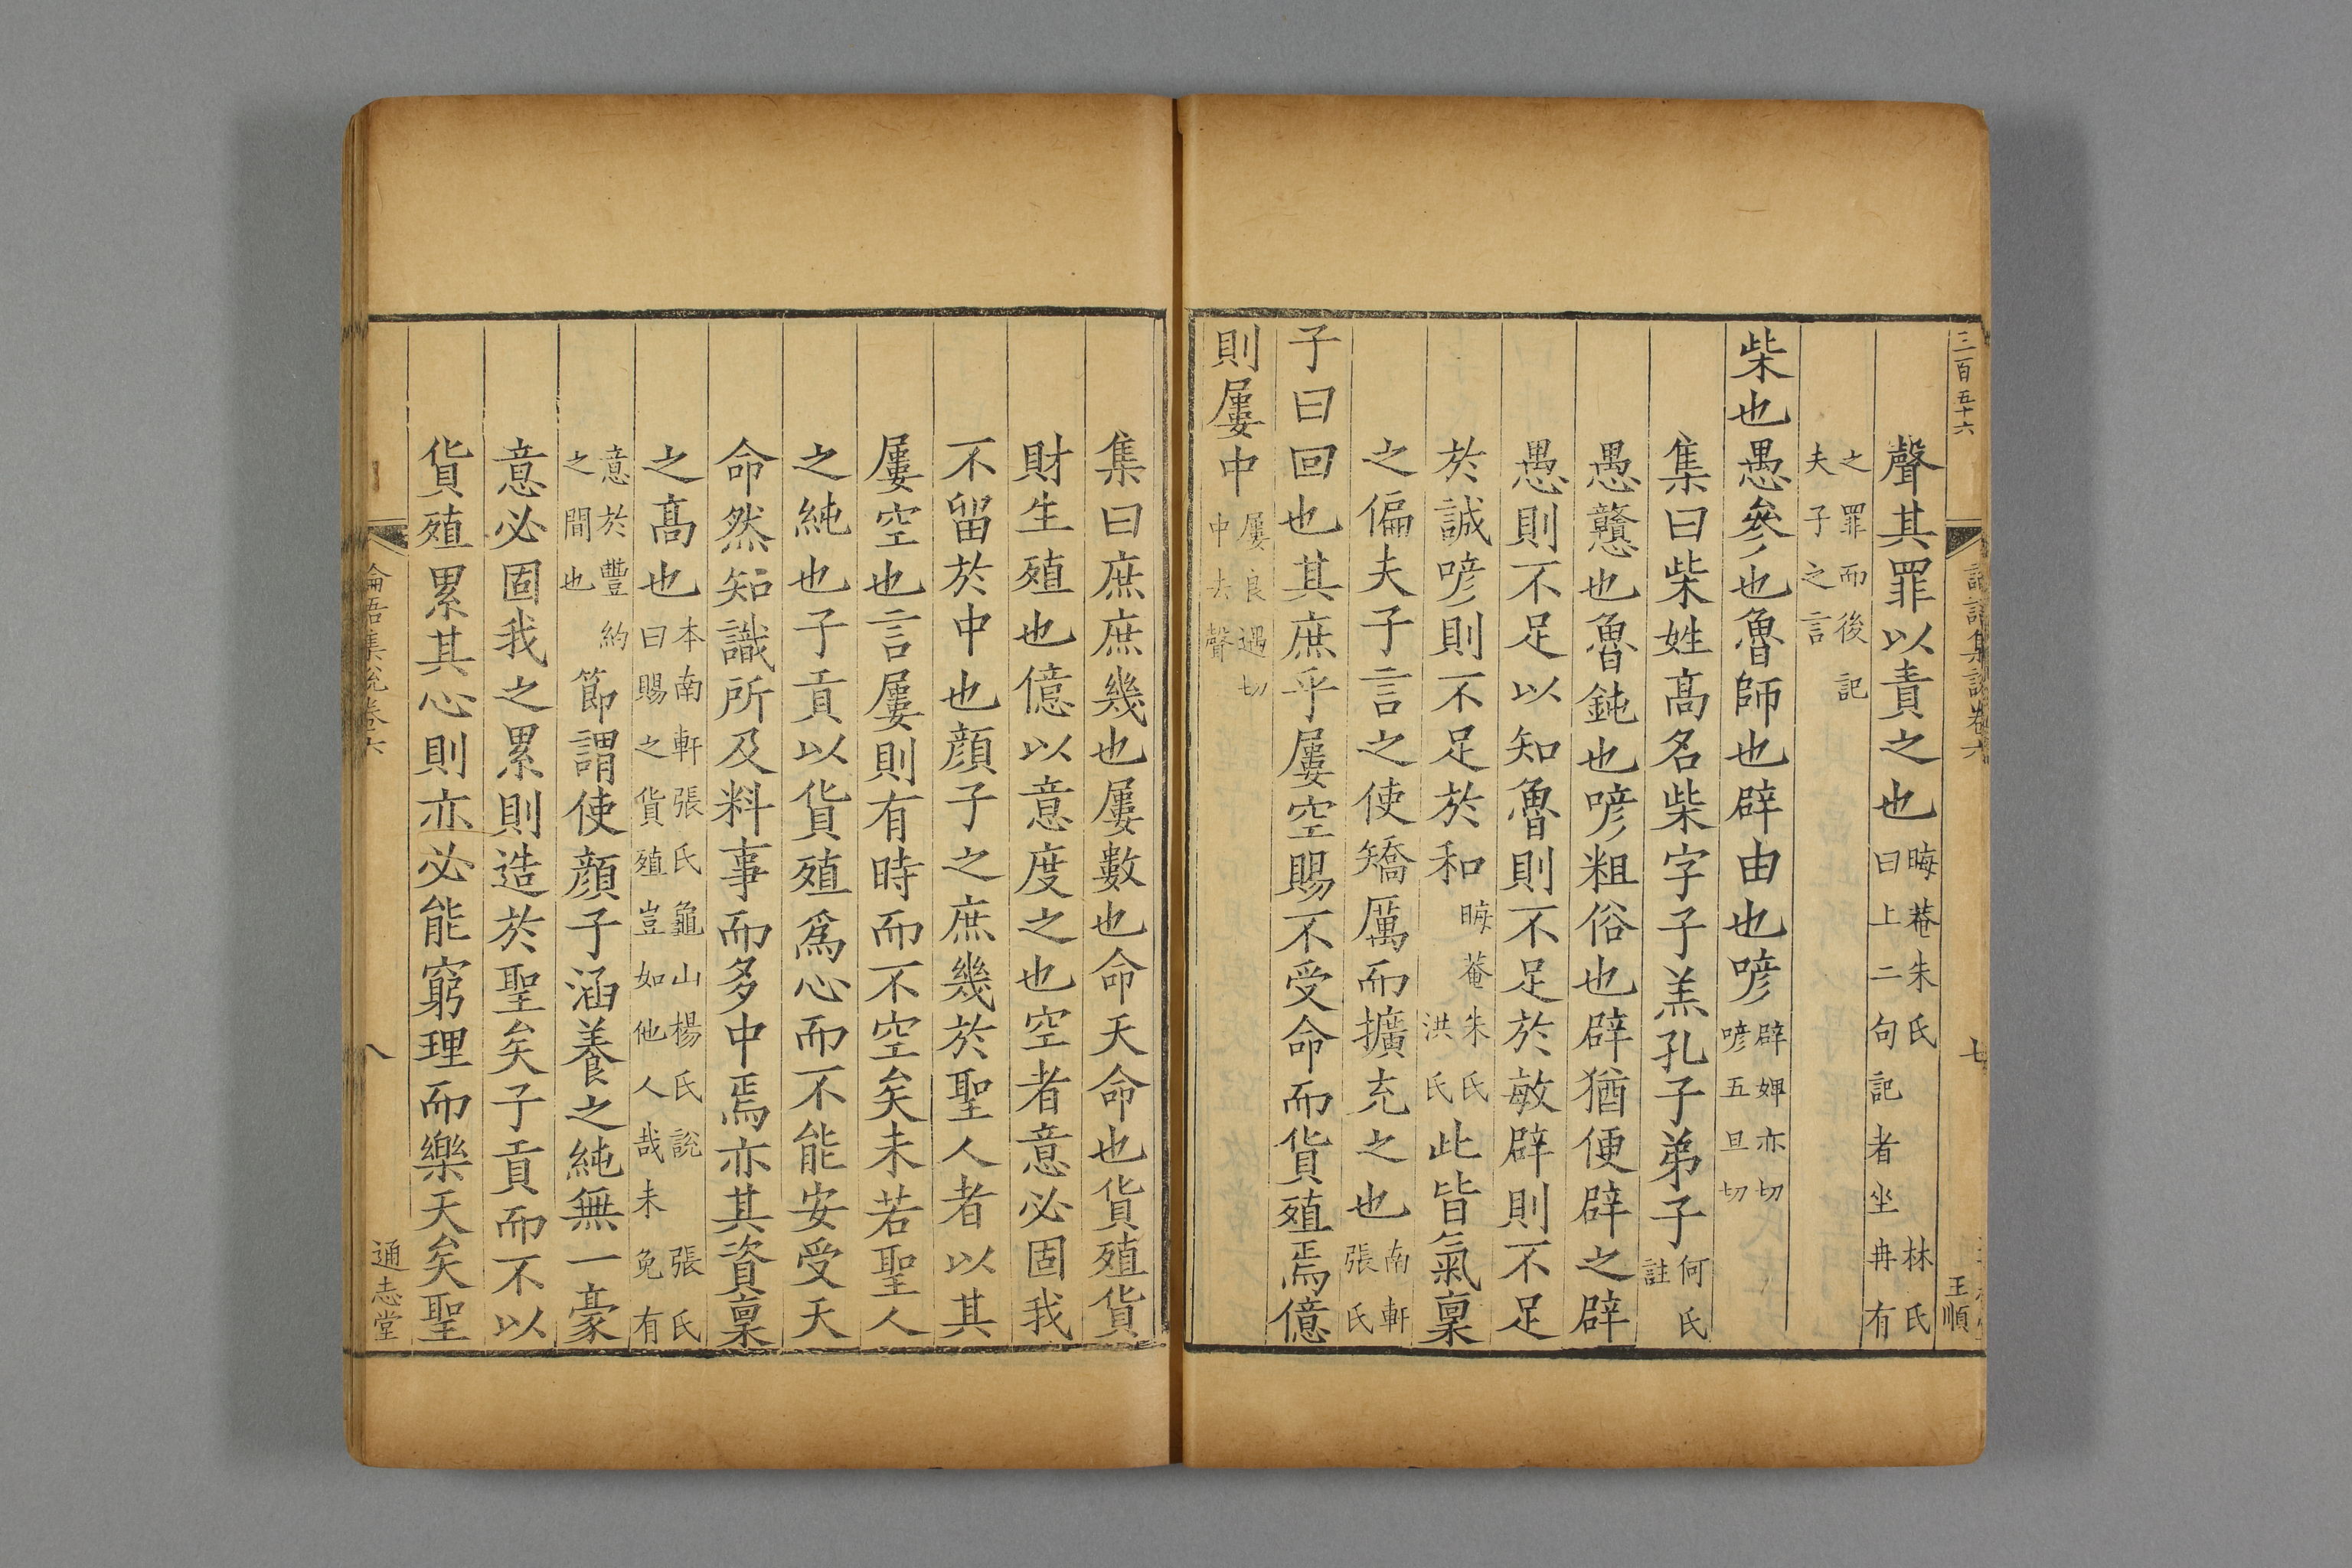 三百五十六
七
王順
聲其罪以責之也晦菴朱氏曰上二句記者坐冉有林氏
之罪而後記夫子之言
柴也愚參也魯師也辟由也喭辟婢亦切喭五旦切
集曰柴姓高名柴字子羔孔子弟子何氏註
愚戇也魯鈍也喭粗俗也辟猶便辟之辟
愚則不足以知魯則不足於敏辟則不足
於誠喭則不足於和晦菴朱氏洪氏此皆氣稟
之偏夫子言之使矯厲而擴充之也南軒張氏
子曰回也其庶乎屢空賜不受命而貨殖焉億
則屢中屢良遇切中去聲
集曰庶庶幾也屢數也命天命也貨殖貨
財生殖也億以意度之也空者意必固我
不留於中也顏子之庶幾於聖人者以其
屢空也言屢則有時而不空矣未若聖人
之純也子貢以貨殖爲心而不能安受天
命然知識所及料事而多中焉亦其資稟
之高也本南軒張氏龜山楊氏說張氏曰賜之貨殖豈如他人哉未免有
意於豐約之間也節謂使顏子涵養之純無一豪
意必固我之累則造於聖矣子貢而不以
貨殖累其心則亦必能窮理而樂天矣聖
論語集說卷六
八
通志堂